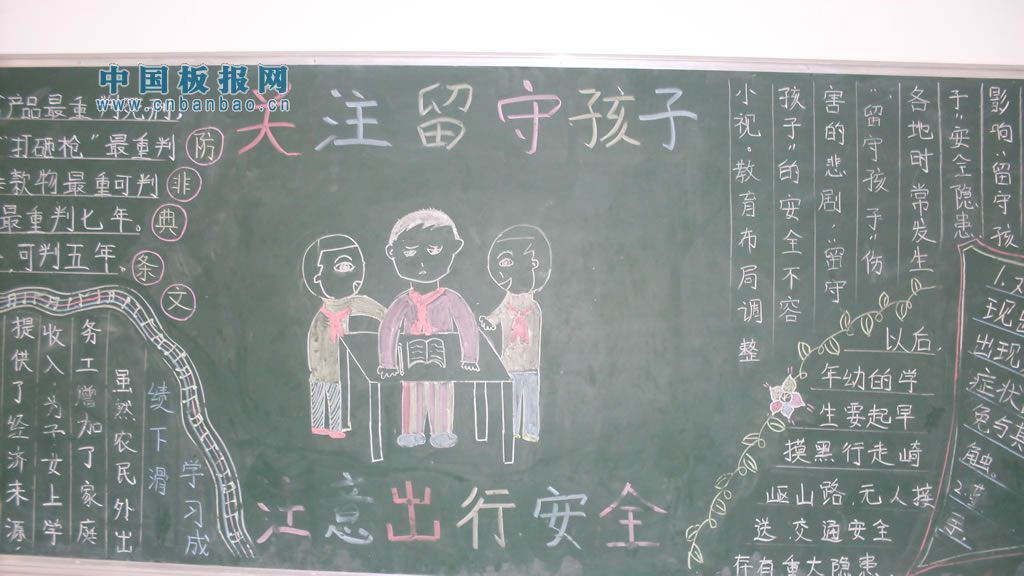 中国板报网
www.cnbanbao.cn
关注留守孩子
产品最重
打砸枪"最重判
款物最重可判
最重判七年。
可判五年、
防
非
典
条
文
学习成
绩下滑
虽然农民外出
务工增加了家庭
收入,为子女上学
提供了经济来源,
注意出行安全
影响,留守孩
子"安全隐患
各地时常发生
"留守孩子"伤
害的悲剧,留守
孩子"的安全不容
小视。教育布局调整
以后,
年幼的学
生要起早
摸黑行走崎
岖山路,无人接
送,交通安全
存有重大隐患
1.
现
出现
症状
免与其
触
2.